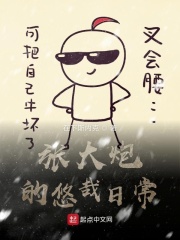 叉会腰：
可把自己牛坏了
张大炮
的悠哉日常
起点中文网